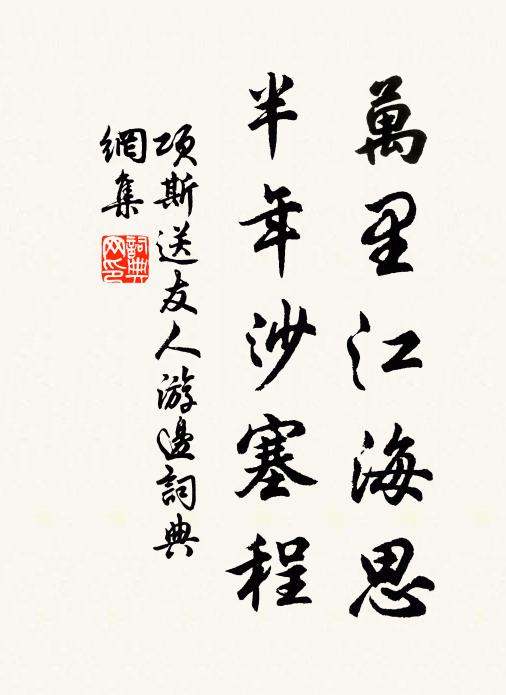 萬里江海思
半年沙塞程
項斯送友人游邊詞典
網集
詞典
网印